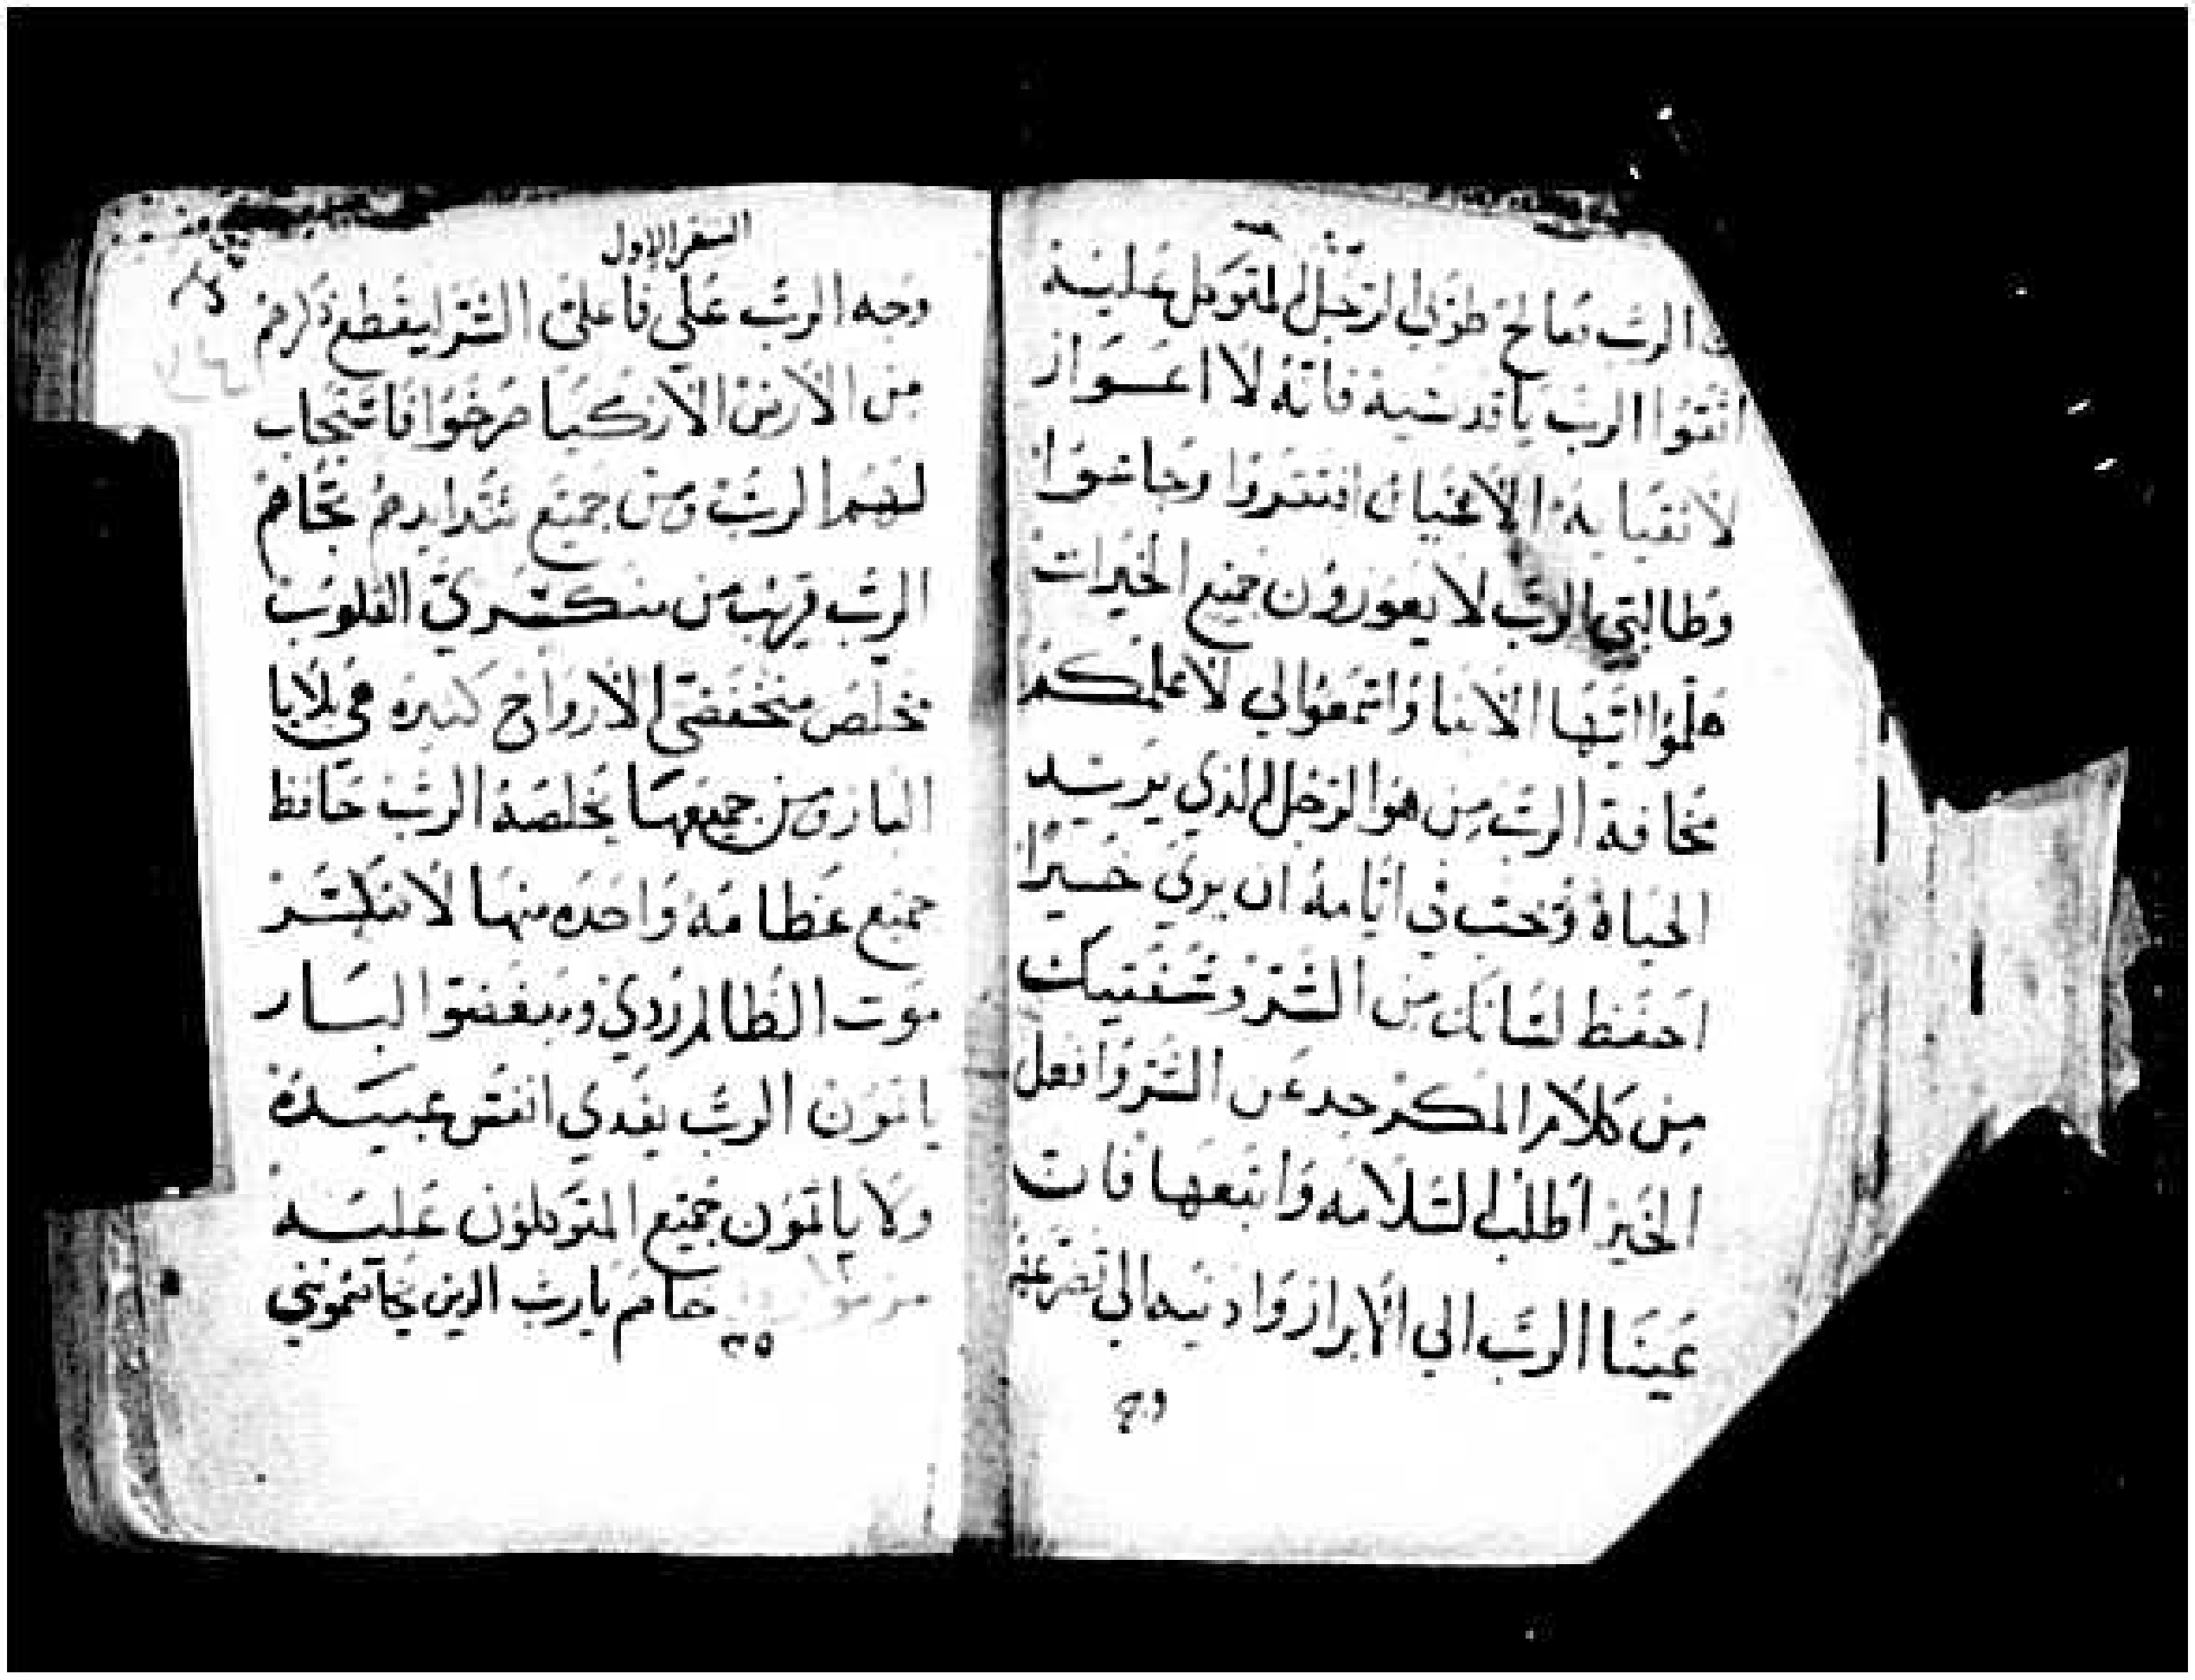 الرب صالح طوبي الرجل المتوكل عليه
اتقوا الرب يا قدسيه فانه لا اعواز
لاتقيايه الاغنيا افتقروا وجاعوا
وطالبي الرب لا يعوزون جميع الخيرات
هلموا ايها الابنا واسمعوا لي لاعلمكم
مخافة الرب من هو الرجل الذي يريد
الحياة ويحب في ايامه ان يري خيرا
احفظ لسانك من الشر وشفتيك
من كلام المكر حد عن الشر وافعل
الخير اطلب السلامه واتبعها فان
عينا الرب الي الابرار واذنيه الي تضرعهم
وجه
السفر الاول
وجه الرب علي فاعلي الشر ليقطع ذكرهم
من الارض الازكيا صرخوا فاستجاب
لهم الرب ومن جميع شدايدهم نجاهم
الرب قريب من منكسري القلوب
يخلص منخفضي الارواح كثيره هي بلايا
البار ومن جميعها يخلصه الرب حافظ
جميع عظامه واحده منها لا تنكسر
موت الظالم ردي ومبغضوا البار
ياثمون الرب يفدي انفس عبيده
ولا ياثمون جميع المتوكلون عليه
مزمور ٣٥ خاصم يارب الذين يخاصموني